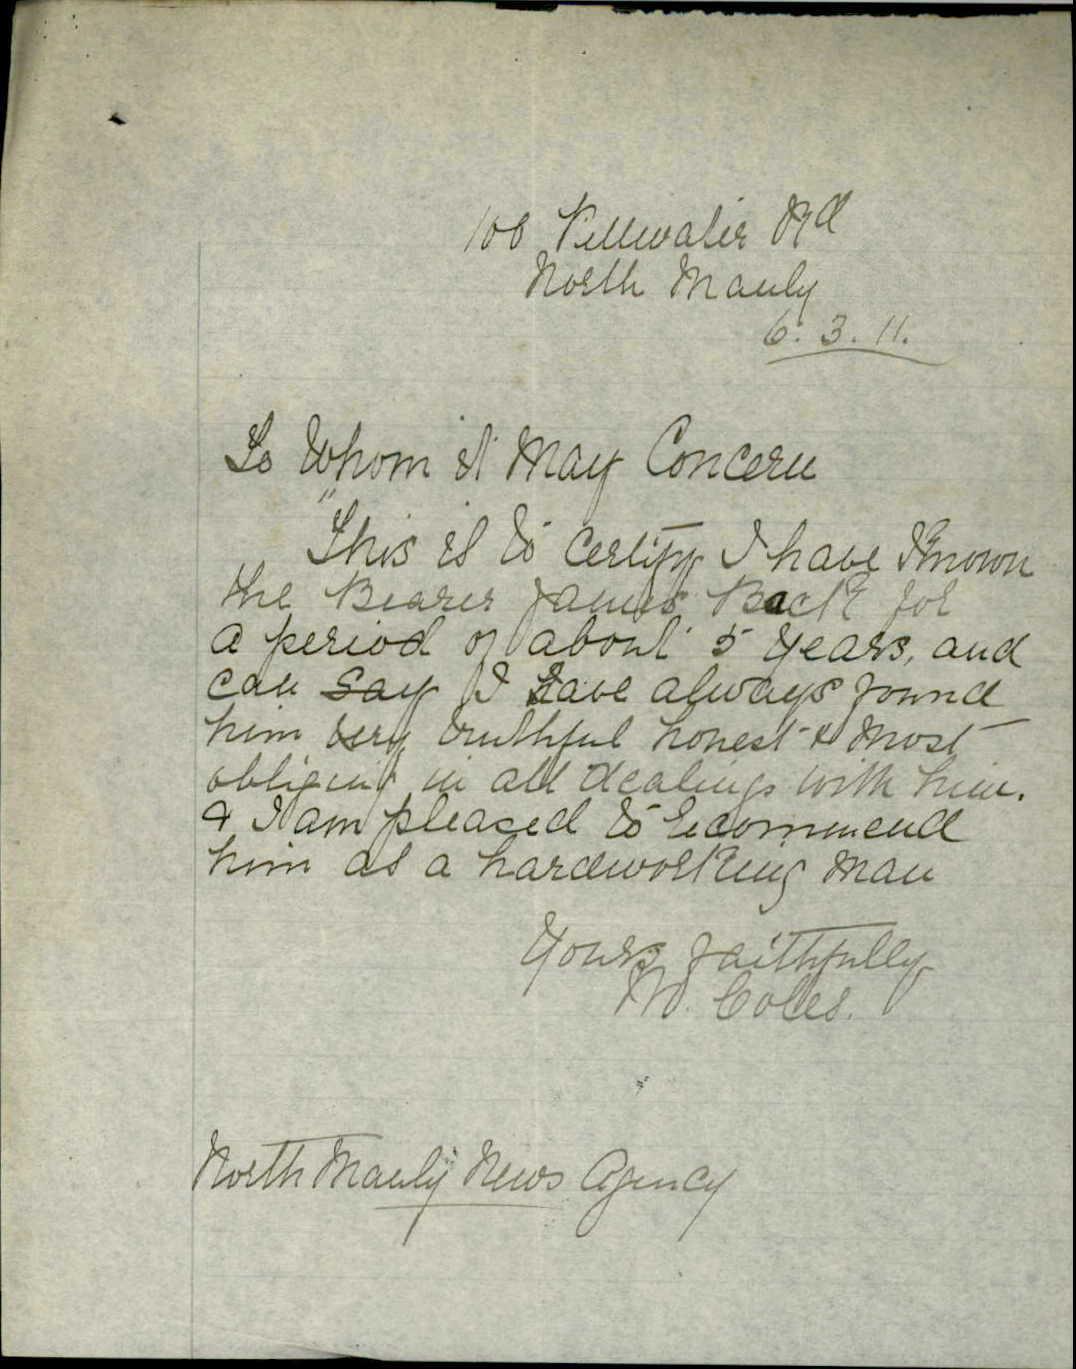 100 Pittwater Rd
North Manly
6. 3. 11.
To Whom it May Concern
"This is to certify I have Known
the Bearer James Back for
a period of about 5 years, and
can say I have always found
him very truthful honest & most
obliging in all dealings with him.
& I am pleased to recommend
him as a hardworking man
Yours faithfully
M. Coles.
North Manly News Agency